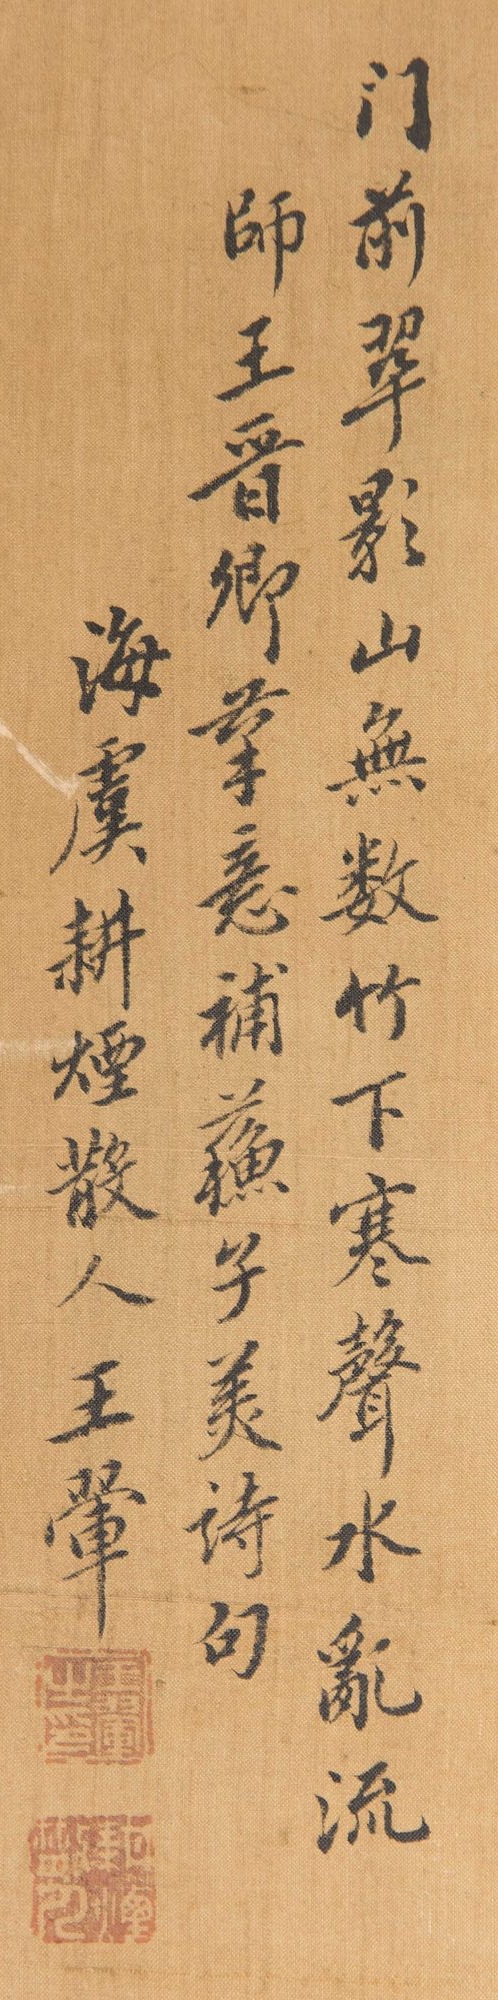 门前翠影山無数竹下寒聲水亂流
師王晉卿筆意補蘇子美詩句
海虞耕煙散人王翬
王翬之印